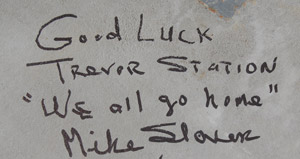 Good Luck
Trevor Station
"We all go home"
Mike